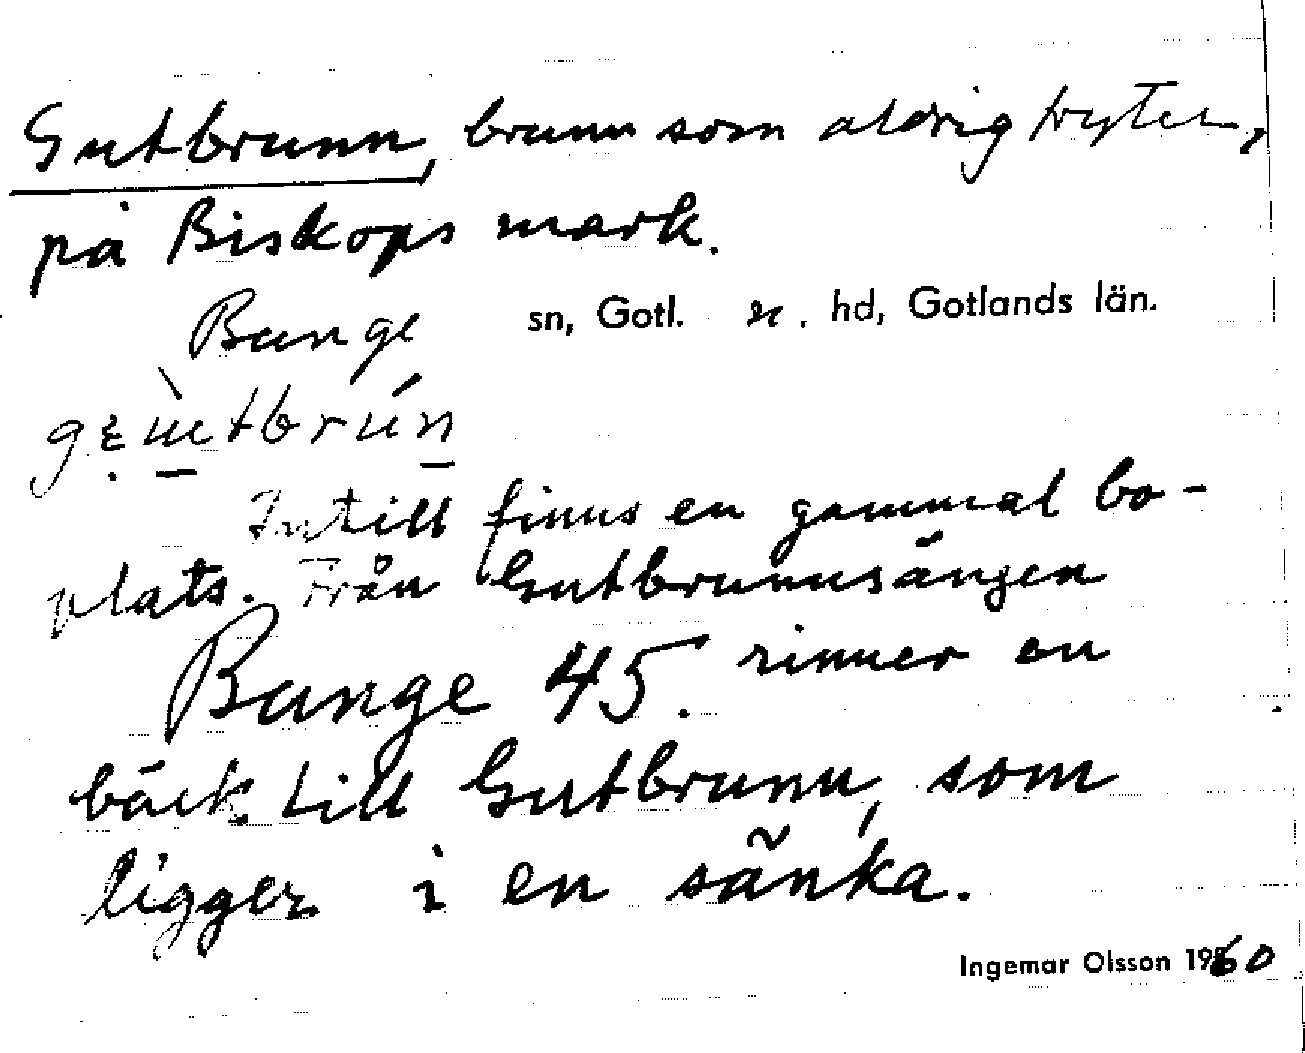 Gutbrunn, brunn som aldrig tryter,
på Biskops mark.
Bunge sn, Gotl. n. hd, Gotlands län.
Intill finns en gammal bo-
plats. Från Gutbrunnsängen
Bunge 45. rinner en
bäck till Gutbrunn, som
ligger i en sänka.
Ingemar Olsson 1960